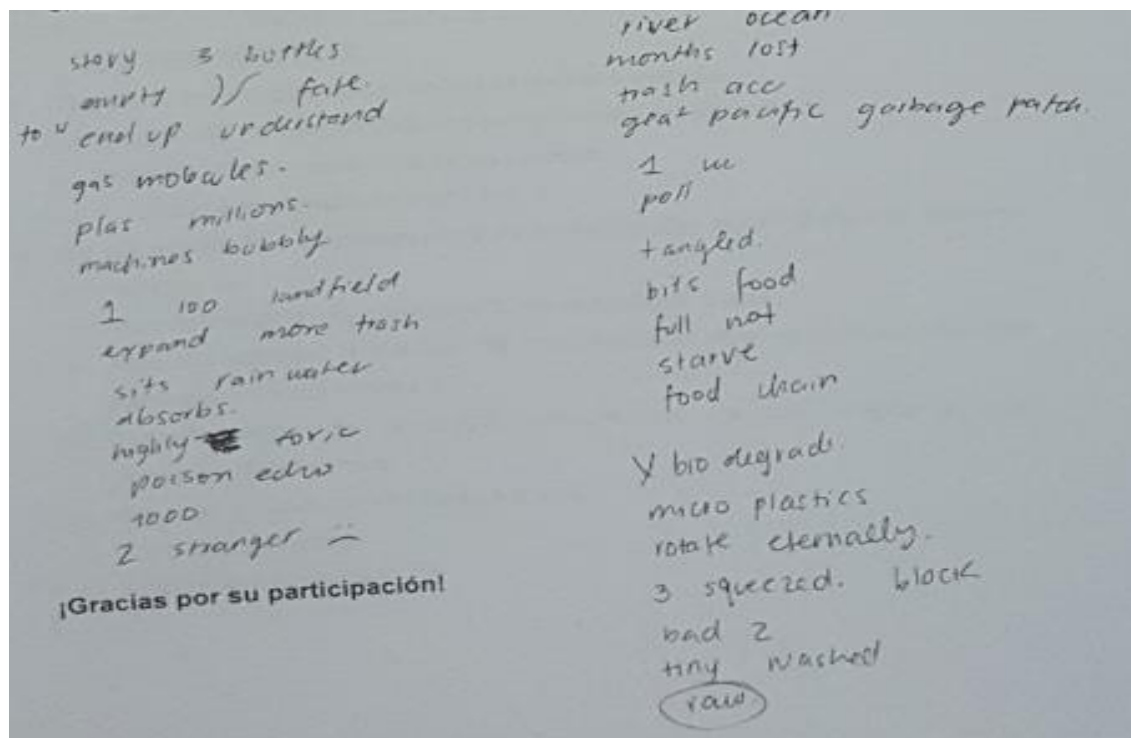 story 3 bottles
empty fate.
to u end up understand
gas molecules.
plas millions.
machines bubbly
1 100 landfield
expand more trash
sits rain water
absorbs.
highly toxic
poison echo
1000
2 stranger
¡Gracias por su participación!
river ocean
months lost
trash acc
great pacific garbage patch.
1
poll
tangled.
bits food
full not
starve
food chain
bio degrad.
micro plastics
rotate eternally.
3 squeezed. block
bad 2
tiny washed
raw